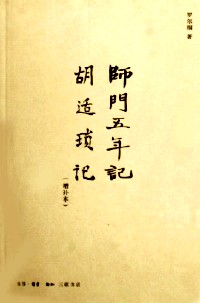 罗尔纲 著
師門五年記
胡适瑣记
(增补本)
生活·讀書·新知 三联书店